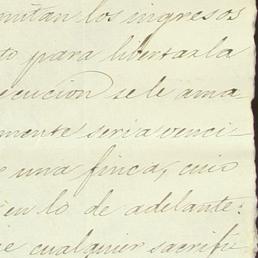 mitan los ingresos
to para libertarla
ecucion se le ama
mente seria venci-
e una finca, cuio
en lo de adelante:
e cualquier sacrifi